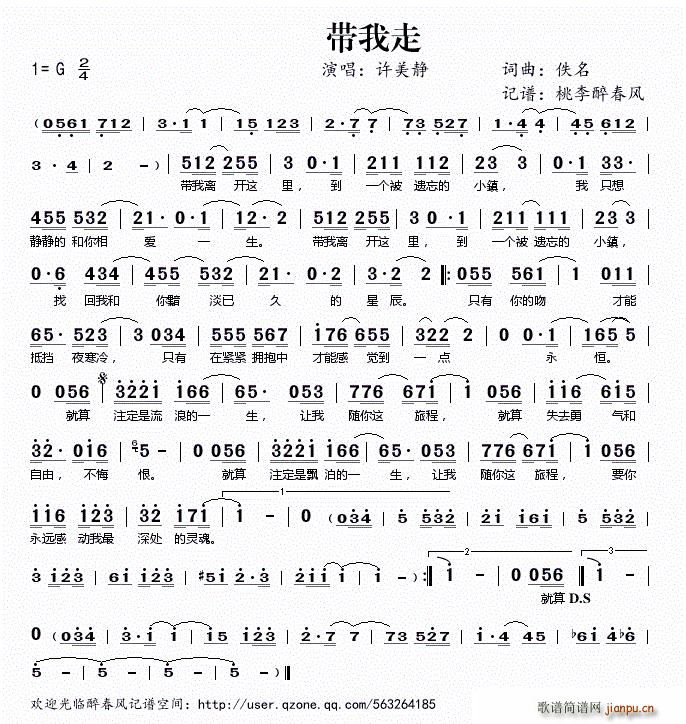 带我走
1=G 2/4 演唱：许美静 词曲：佚名
记谱：桃李醉春风
（0561 712 | 3·1 1 | 15 123 | 2·7 7 | 73 527 | 1·4 4 | 45 612
3·4 | 2 -）| 512 255 | 3 0·1 | 211 211 | 23 3 | 0·1 33·
带我离 开这 里，到 一个被 遗忘的 小鎮， 我 只想
455 532 | 21· 0·1 | 12·2 | 512 255 | 3 0·1 | 211 211 | 23 3 |
静静的 和你相 爱 一 生。 带我离 开这 里，到 一个被 遗忘的 小鎮，
0·6 434 | 455 532 | 21· 0·2 | 3·2 2 |: 055 561 | 1 011
找 回我和 你黯 淡已 久 的 星 辰。 只有 你的吻 才能
65· 523 | 3 034 | 555 567 | 176 655 | 322 2 | 0 0· | 165 5 |
抵挡 夜寒冷， 只有 在紧紧 拥抱中 才能感 觉到 一 点 永 恒。
0 056 | 3221 166 | 65· 053 | 776 671 | 1 056 | 116 611
就算 注定是流 浪的一 生，让我 随你这 旅程， 就算 失去勇 气和
32· 016 | 5 - | 0 056 | 3221 166 | 65·053 | 776 671 | 1 056 |
自由，不悔 恨。 就算 注定是飘 泊的一 生，让我 随你这 旅程， 要你
1
116 123 | 32 171 | 1 - | 0 （034 | 5 532 | 21 161 | 5 532
永远感 动我最 深处 的灵魂。
2 3
3 123 | 61 123 | #51 2·3 | 211 1 | 1 -）:| 1 - | 0 056 :| 1 - |
就算 D.S
0 （034 | 3·1 1 | 15 123 | 2·7 7 | 73 527 | 1·4 4 | b61 4b6 |
5 - | 5 - | 5 - | 5 -）||
欢迎光临醉春风记谱空间：http://user.qzone.qq.com/563264185
歌谱简谱网
jianpu.cn